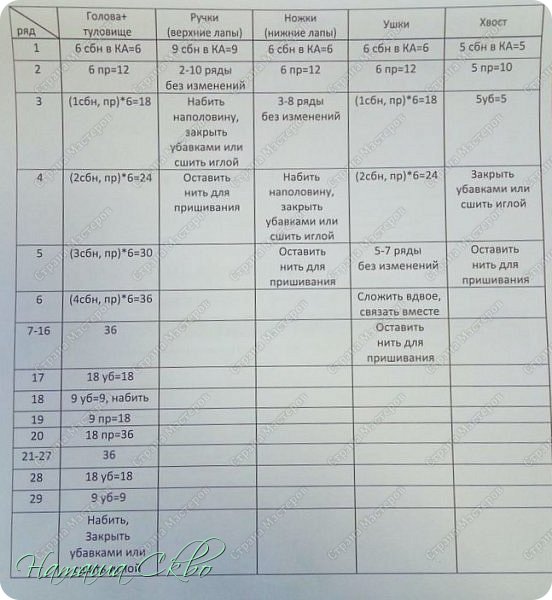 ряд Голова+ туловище Ручки (верхние лапы) Ножки (нижние лапы) Ушки Хвост
1 6 сбн в КА=6 9 сбн в КА=9 6 сбн в КА=6 6 сбн в КА=6 5 сбн в КА=5
2 6 пр=12 2-10 ряды без изменений 6 пр=12 6 пр=12 5 пр=10
3 (1сбн, пр)*6=18 Набить наполовину, закрыть убавками или сшить иглой 3-8 ряды без изменений (1сбн, пр)*6=18 5уб=5
4 (2сбн, пр)*6=24 Оставить нить для пришивания Набить наполовину, закрыть убавками или сшить иглой (2сбн, пр)*6=24 Закрыть убавками или сшить иглой
5 (3сбн, пр)*6=30 Оставить нить для пришивания 5-7 ряды без изменений Оставить нить для пришивания
6 (4сбн, пр)*6=36 Сложить вдвое, связать вместе
7-16 36 Оставить нить для пришивания
17 18 уб=18
18 9 уб=9, набить
19 9 пр=18
20 18 пр=36
21-27 36
28 18 уб=18
29 9 уб=9
Набить, Закрыть убавками или иглой
Наташа Скво
Страна Мастеров